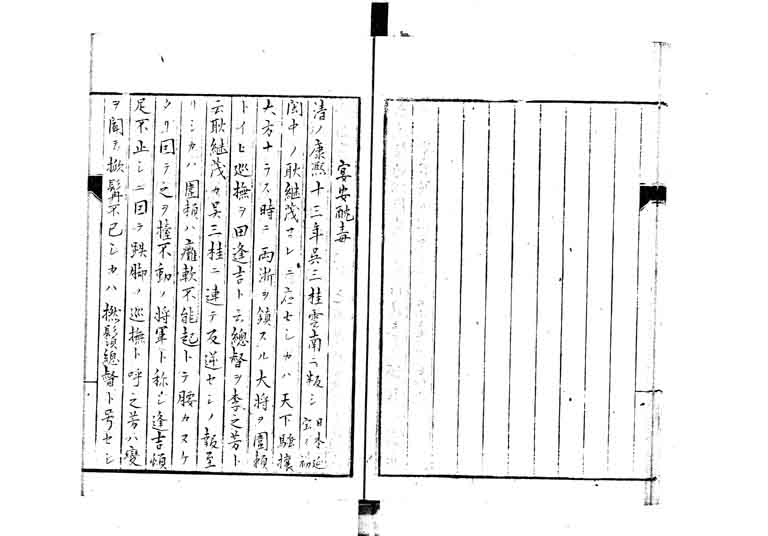 宴安酖毒
清ノ康熙十三年呉三桂雲南ニ叛シ日本延宝ノ初
閩中ノ耿継茂サレニ応セシカハ天下騒擾
大方ナラス時ニ両浙ヲ鎮スル大将ヲ図頼
トイヒ巡撫ヲ田逢吉ト云總督ヲ李之芳ト
云耿継茂カ呉三桂ニ連テ反逆セシノ報至
リシカハ図頼ハ癱軟不能起トテ腰カスケ
ナリ因テ之ヲ撞不動ノ将軍ト称シ逢吉頓
足不止シニ因テ跌脚ノ巡撫ト呼之芳ハ変
ヲ聞テ掀髯不已シカハ撚鬚總督ト号セシ